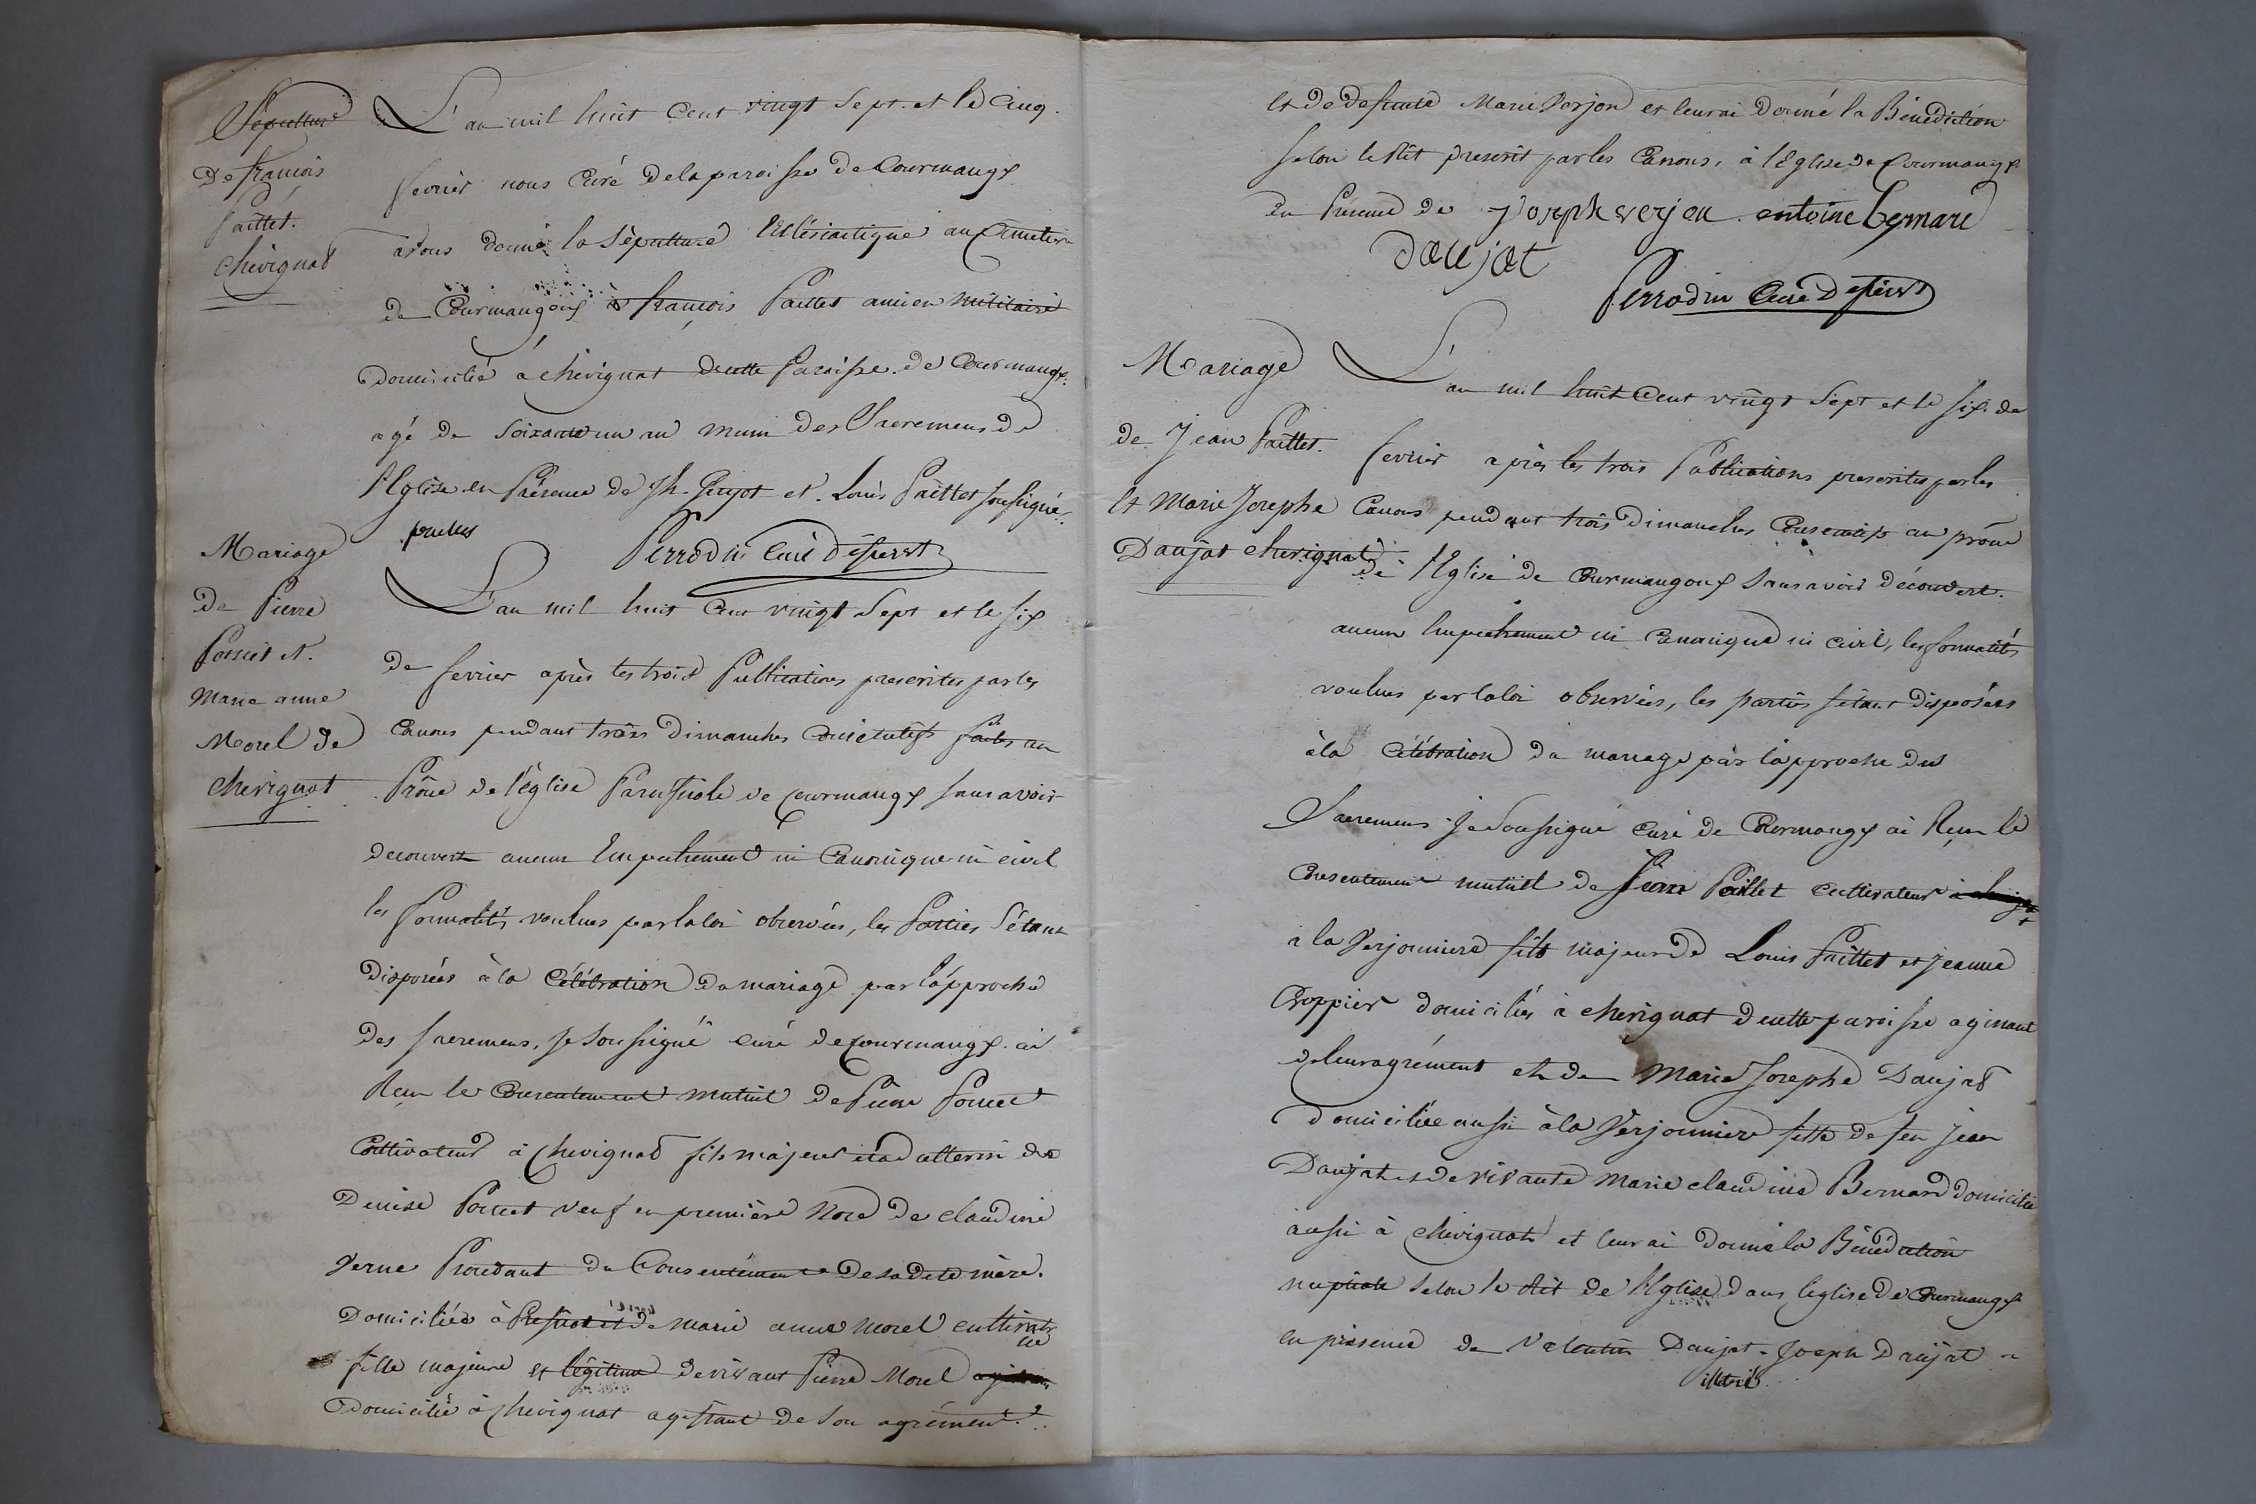 Sépulture
De françois
Paillet.
Chevignat
L'an mil huit Cent vingt Sept. et le Cinq.
fevrier nous Curé de la paroisse de Courmangx
avons donné la Sépulture Ecclésiastique au Cimetiere
de Courmangoux à françois Paillet ancien militaire
domicilié à chevignat de cette Paroisse de Courmangx.
agé de Soixante un an muni des Sacremens de
l'Eglise en Présence de Jh. Guyot et Louis Paillet soussignés.
Perrodin Curé desservt
Mariage
De Pierre
Poncet et.
Marie anne
Morel de
chevignat
L'an mil huit Cent vingt Sept et le six
de fevrier après les trois Publications prescrites par les
Canons pendant trois Dimanches Consécutifs faites au
Prône de l'église Paroissiale de Courmangx sans avoir
decouvert aucun Empechement ni Canonique ni civil
les formalités voulues par la loi observées, les Parties S'étant
Disposées à la Célébration du mariage par l'approche
des sacremens, je soussigné curé de Courmangx. ai
Reçu le Consentement mutuel de Pierre Poncet
Cultivateur à Chevignat fils majeur
Denise Poncet veuf en première Noce de claudine
Verne Procedant du Consentement de sadite mère.
Domiciliée à et de marie anne Morel cultivatrice
fille majeure et légitime de vivant Pierre Morel
domicilié à Chevignat agissant de son agrément
et de defunte Marie Verjon et leur ai donné la Bénédiction
selon le Rit prescrit par les Canons, à l'Eglise de Courmangx
En Présence de joseph verjon antoine bernard
daujat
Perrodin Curé Desservt
Mariage
de Jean Paillet.
Et Marie Josephe
Daujat chevignat
L'an mil huit Cent vingt Sept et le six de
fevrier après les trois Publications prescrites par les
Canons pendant trois Dimanches Consecutifs au prône
de l'Eglise de Courmangoux sans avoir découvert.
aucun Empechement ni Canonique ni civil, les formalités
voulues par la loi observées, les parties s'étant disposées
à la Célébration du mariage par l'approche des
Sacremens. Je Soussigné Curé de Courmangx ai Reçu le
Consentement mutuel de Jean Paillet cultivateur
à la Verjonniere fils majeur de Louis Paillet et jeanne
Croppier domiciliés à chevignat de cette paroisse agissant
de leur agrément et de Marie Josephe Daujat
Domiciliée aussi à la Verjonniere fille de feu jean
Daujat et de vivante Marie claudine Bernard domiciliée
aussi à chevignat et leur ai donné la Bénédiction
nuptiale selon le Rit de l'Eglise dans l'eglise de Courmangx
en présence de Valentin Daujat Joseph Daujat